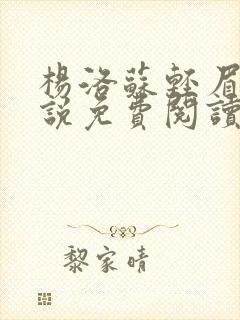 楊洛蘇輕眉
說免費閱讀
黎家晴